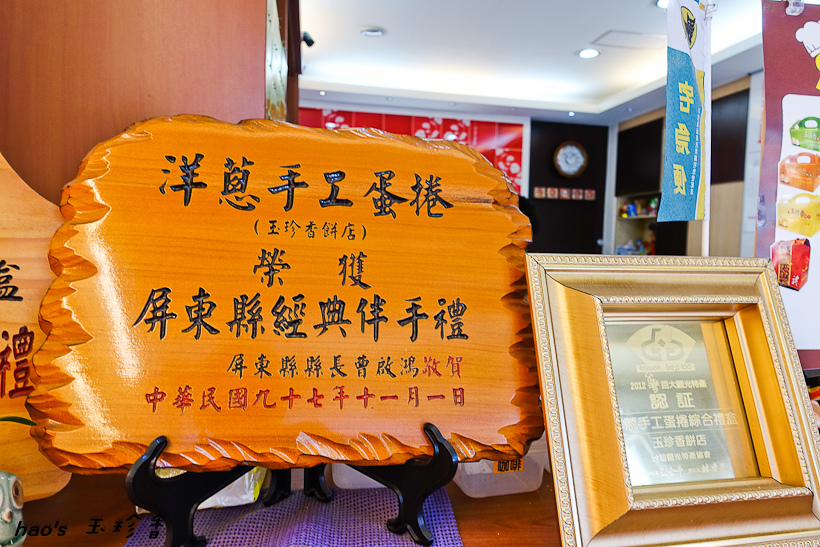 洋蔥手工蛋捲
(玉珍香餅店)
榮獲
屏東縣經典伴手禮
屏東縣縣長曹啟鴻敬賀
中華民國九十七年十一月一日
盒
禮
宅急便
咖啡
2012
認証
手工蛋捲綜合禮盒
玉珍香餅店
hao's 玉珍香